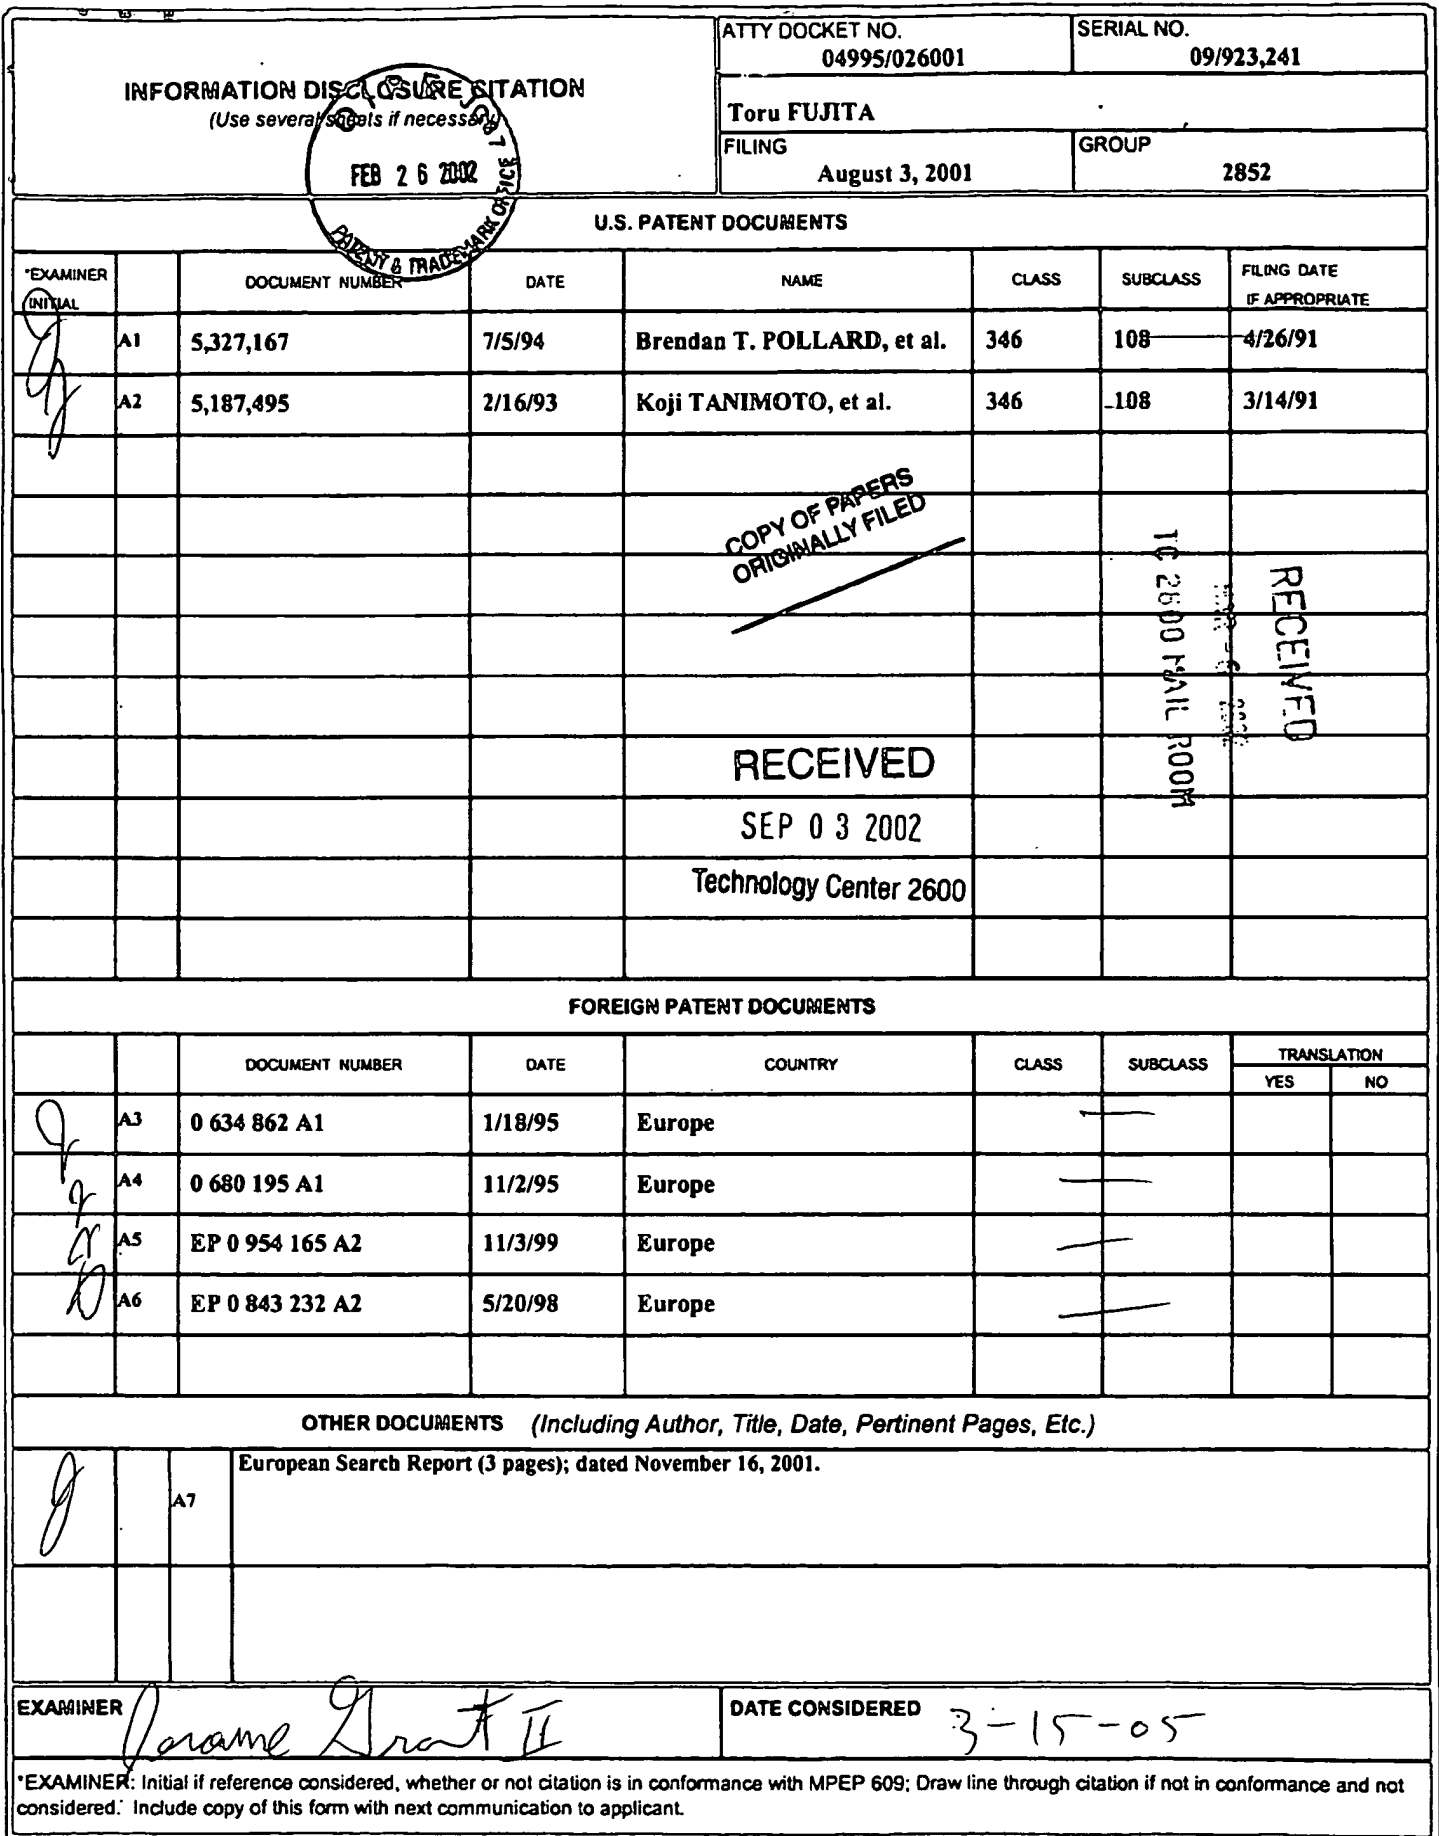 ATTY DOCKET NO.
04995/026001
SERIAL NO.
09/923,241
INFORMATION DISCLOSURE CITATION
(Use several sheets if necessary)
Toru FUJITA
FILING
August 3, 2001
GROUP
2852
O I P E
FEB 26 2002
PATENT & TRADEMARK OFFICE
U.S. PATENT DOCUMENTS
*EXAMINER INITIAL DOCUMENT NUMBER DATE NAME CLASS SUBCLASS FILING DATE IF APPROPRIATE
A1 5,327,167 7/5/94 Brendan T. POLLARD, et al. 346 108 4/26/91
A2 5,187,495 2/16/93 Koji TANIMOTO, et al. 346 108 3/14/91
COPY OF PAPERS
ORIGINALLY FILED
RECEIVED
TC 2600 MAIL ROOM
RECEIVED
SEP 03 2002
Technology Center 2600
FOREIGN PATENT DOCUMENTS
DOCUMENT NUMBER DATE COUNTRY CLASS SUBCLASS TRANSLATION
YES NO
A3 0 634 862 A1 1/18/95 Europe
A4 0 680 195 A1 11/2/95 Europe
A5 EP 0 954 165 A2 11/3/99 Europe
A6 EP 0 843 232 A2 5/20/98 Europe
OTHER DOCUMENTS (Including Author, Title, Date, Pertinent Pages, Etc.)
A7 European Search Report (3 pages); dated November 16, 2001.
EXAMINER Jerome Grant II
DATE CONSIDERED 3-15-05
*EXAMINER: Initial if reference considered, whether or not citation is in conformance with MPEP 609; Draw line through citation if not in conformance and not
considered. Include copy of this form with next communication to applicant.